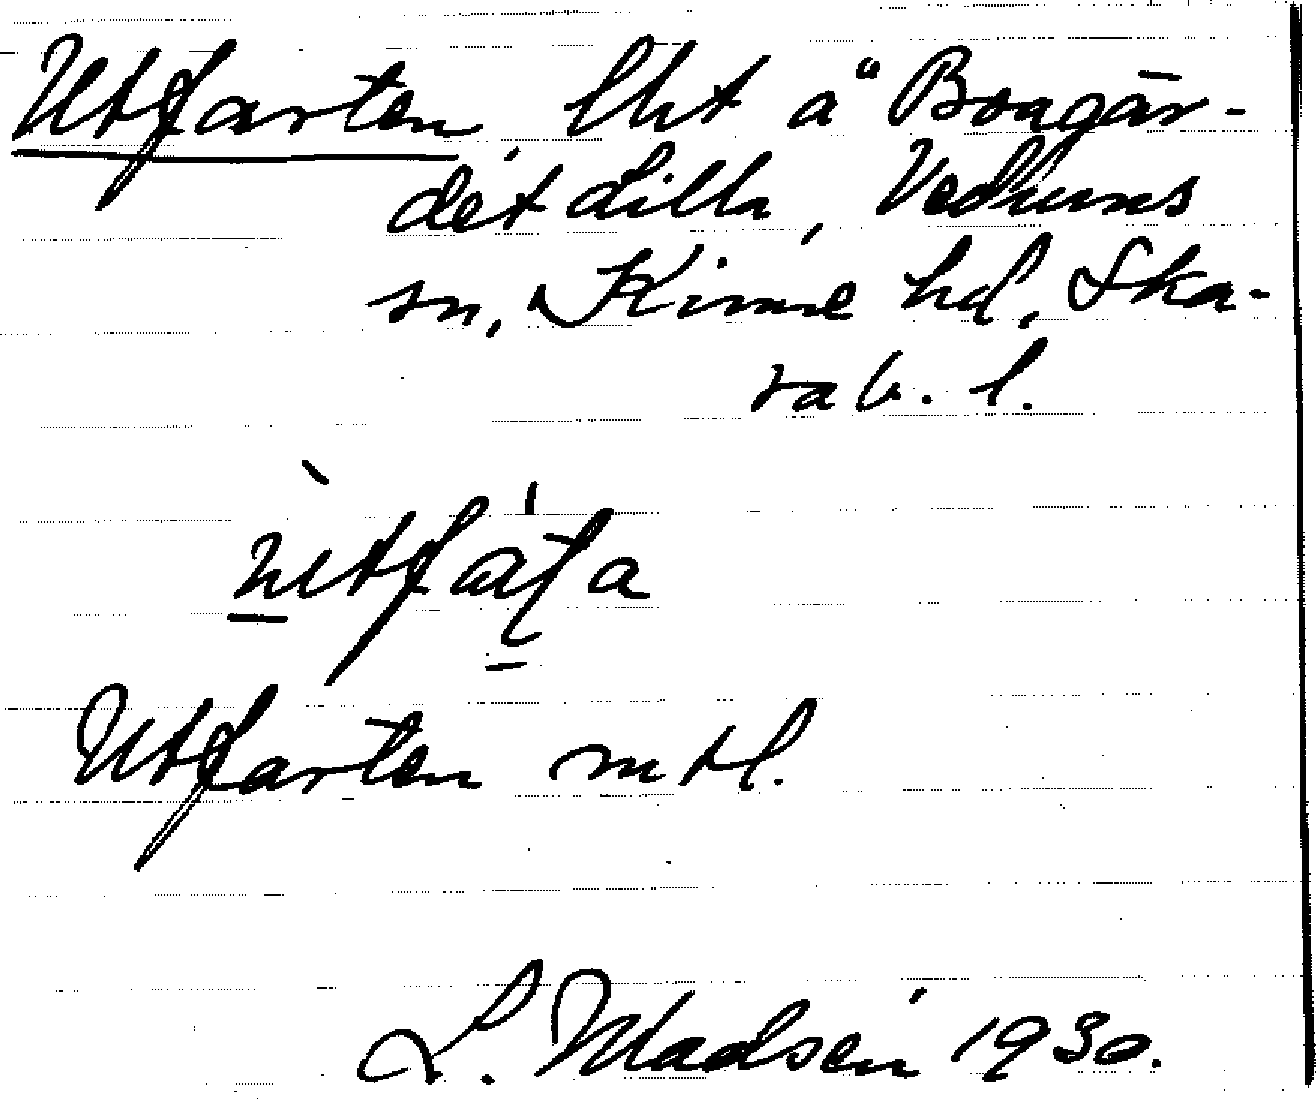 Utfarten, lht å Bongär-
det Lilla, Vedums
sn, Kinne hd, Ska-
rab. l.
Utfarten mtl.
L. Madsén 1930.